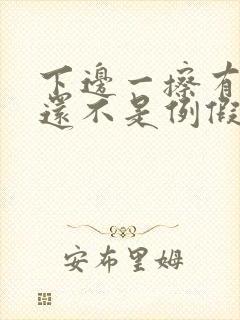 下邊一擦有
還不是例假
安布里姆